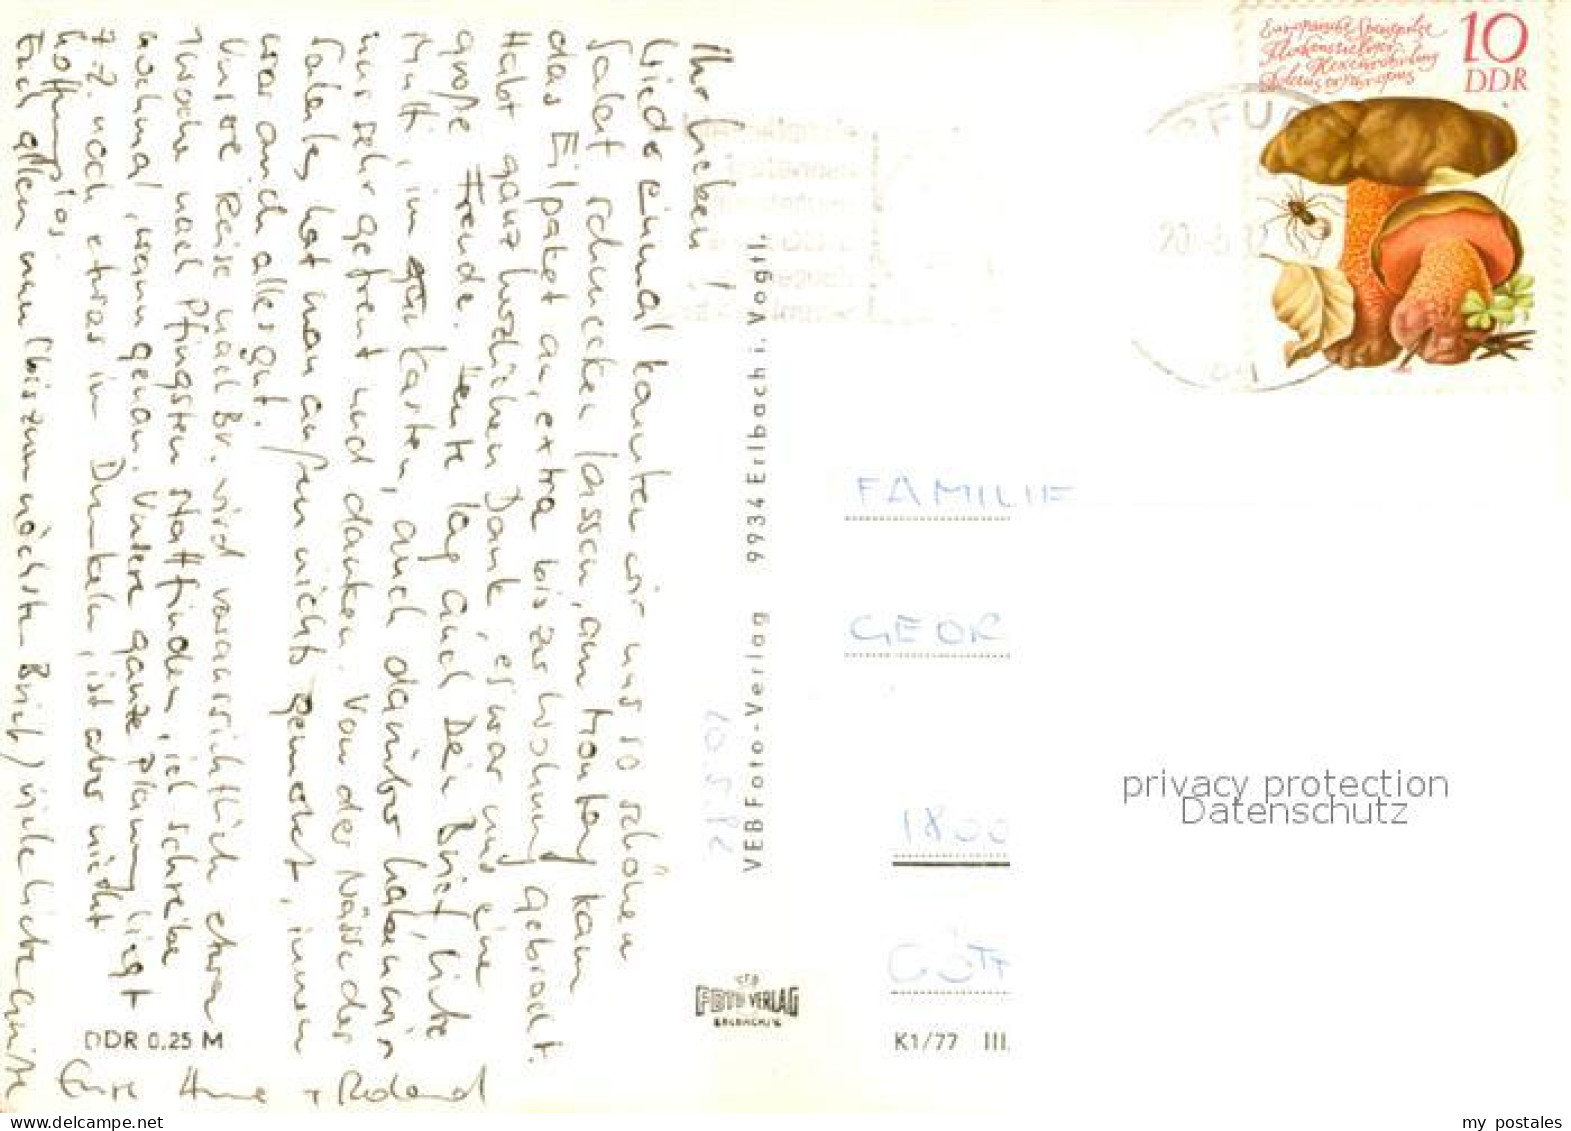 Ihr Lieben!
Wieder einmal konnten wir uns so schönen
Salat schmecken lassen, am Montag kam
das Eilpaket an, extra bis zur Wohnung gebracht.
Habt ganz herzlichen Dank, es war uns eine
große Freude. Heute lag auch Dein Brief, liebe
Mutti, im Kasten, auch darüber haben wir
uns sehr gefreut und danken. Von der Nässe der
Salentes hat man außen nichts gemerkt, innen
war auch alles gut.
Unsere Reise nach Br. wird voraussichtlich etwa
1 Woche nach Pfingsten stattfinden, ich schreibe
nochmal, wann genau. Unsere ganze Planung liegt
z.Z. noch etwas im Dunkeln, ist aber nicht
hoffnungslos.
Euch allen nun (bis zum nächsten Brief) viele liebe Grüße
Eure Anne + Roland
DDR 0.25 M
VEB Foto-Verlag 9934 Erlbach i. Vogtl.
10.5.82
FOTO VERLAG
K1/77 III.
Europäische Speisepilze
Flockenstieliger
Hexenröhrling
Boletus erythropus
10
DDR
20.-5.82
FAMILIE
GEOR
1800
privacy protection
Datenschutz
my postales